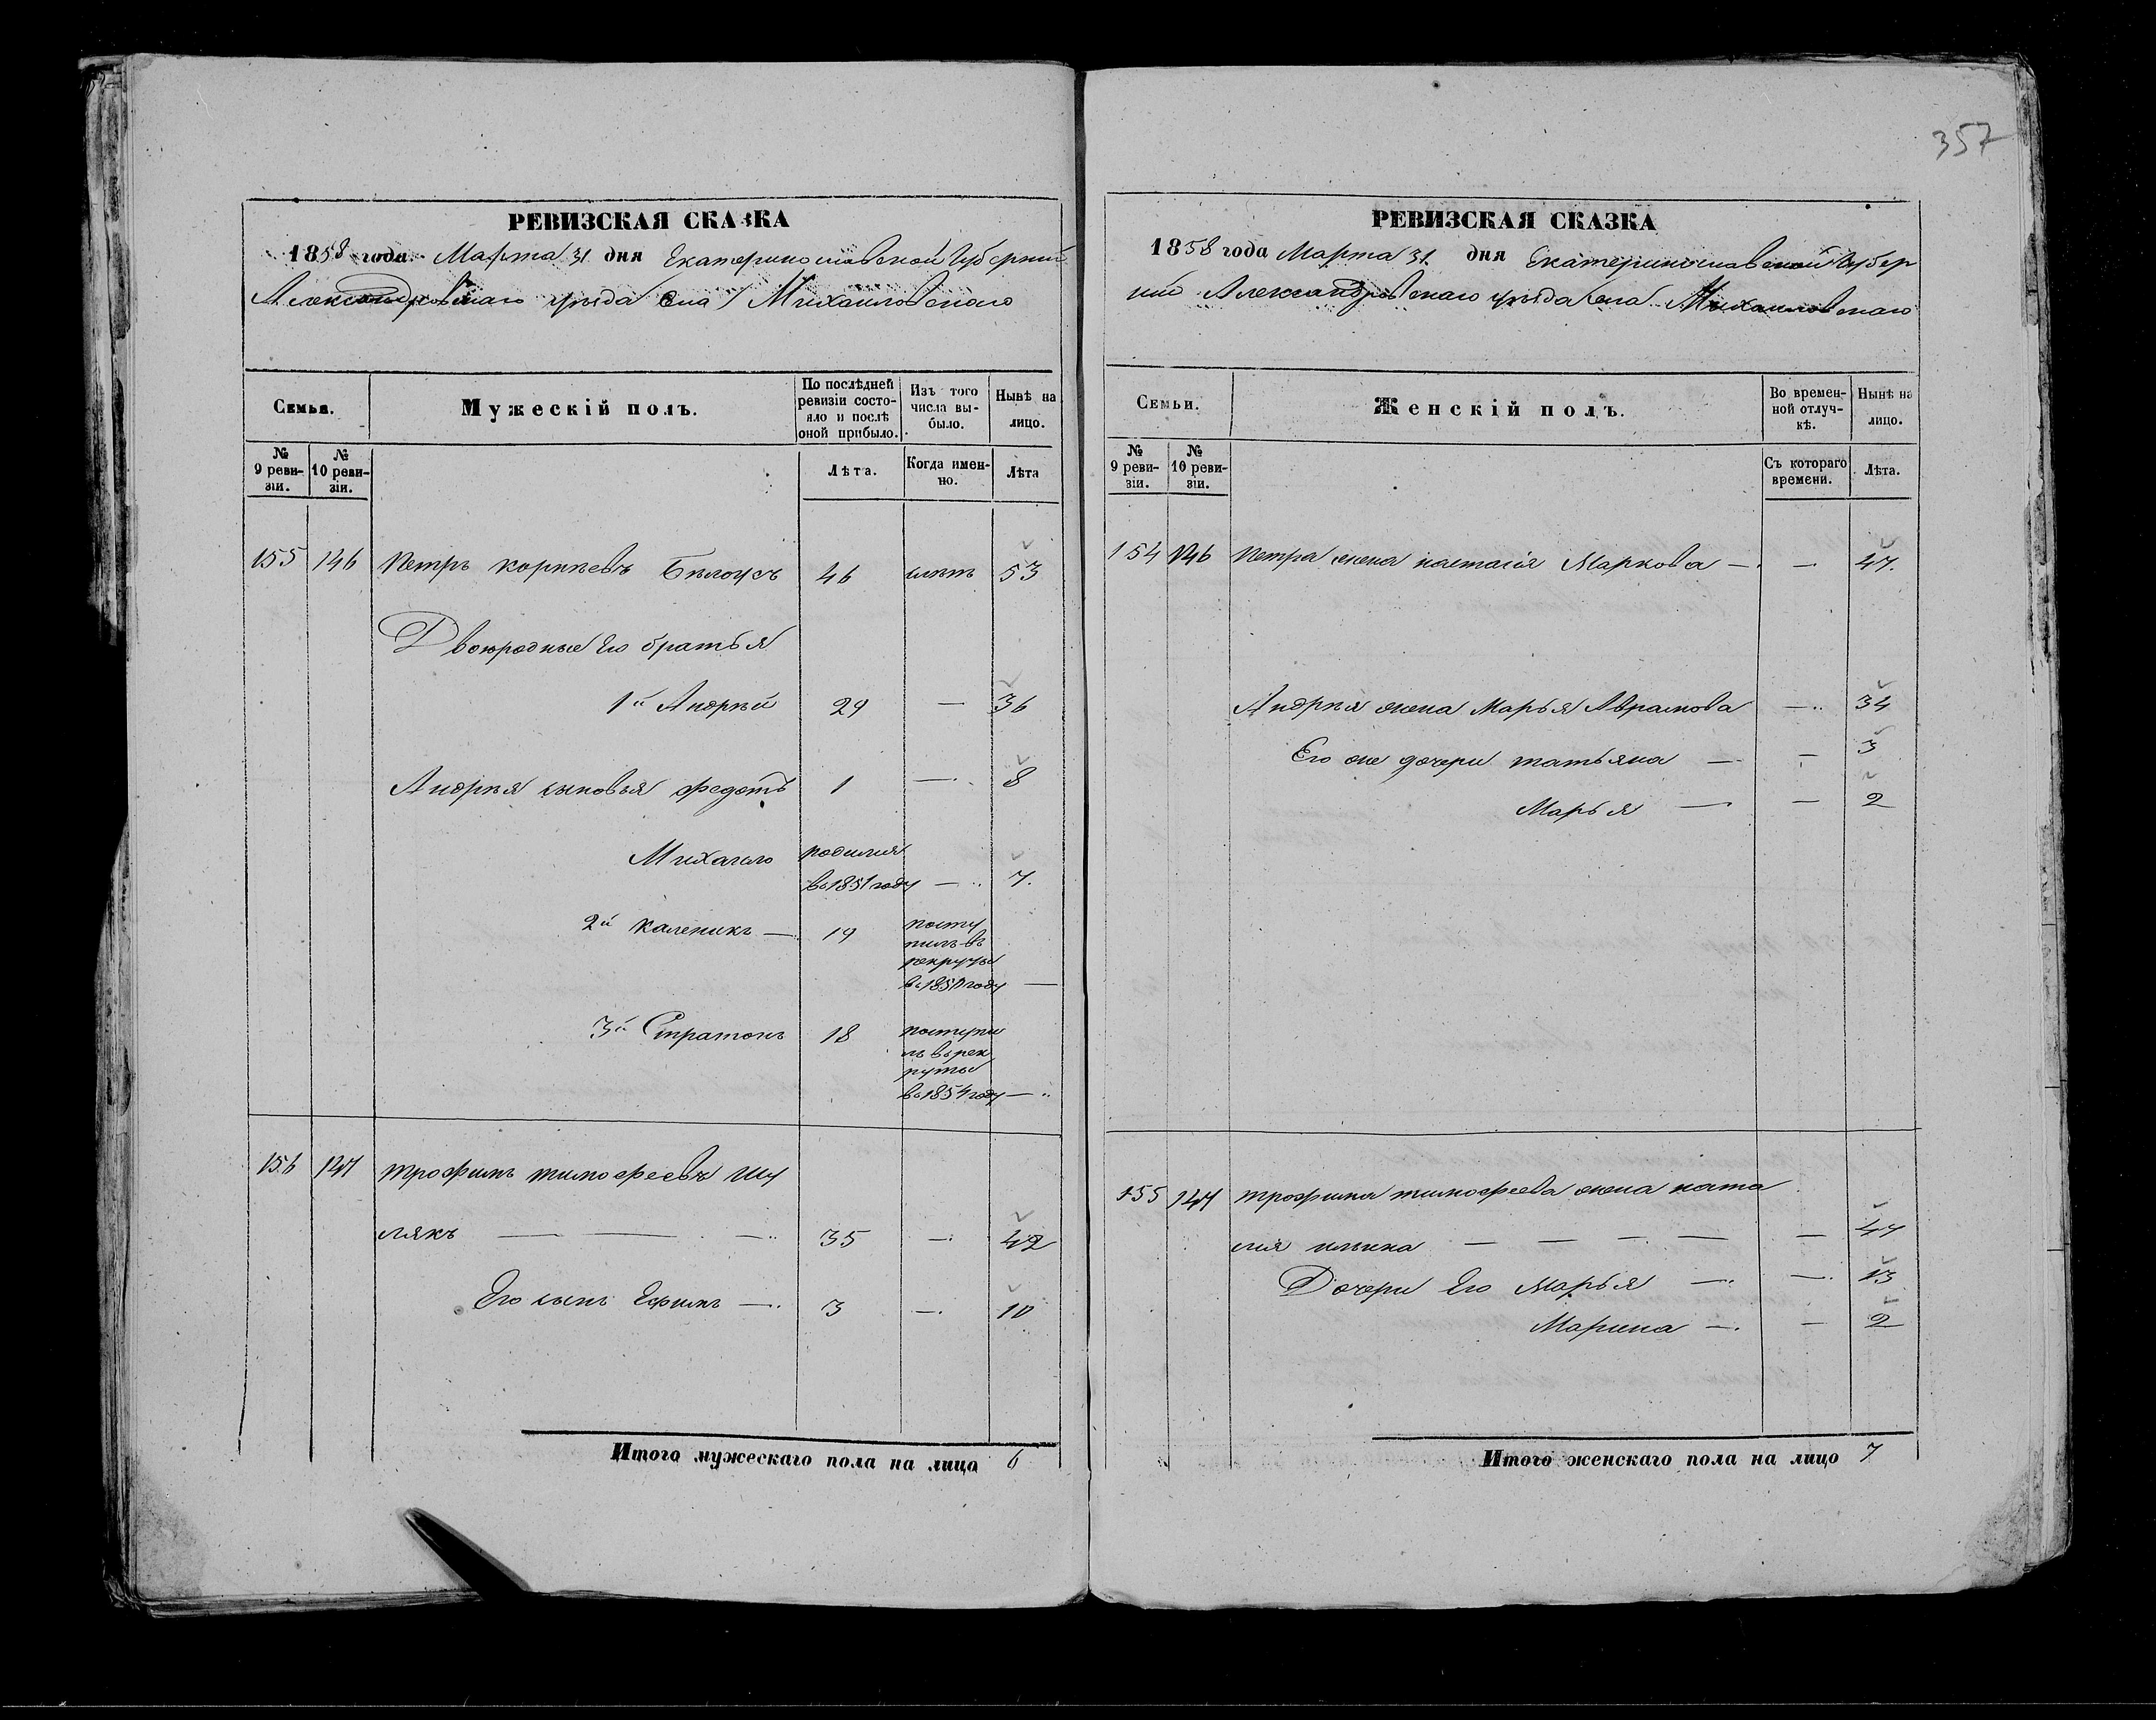 357
РЕВИЗСКАЯ СКАЗКА
1858 года Марта 31 дня Екатеринославской Губерніи
Александровскаго уѣзда Села Михайловскаго
Семьи.
Мужескій полъ.
По послѣдней ревизіи состояло и послѣ оной прибыло.
Изъ того числа выбыло.
Нынѣ на лицо.
№ 9 ревизіи.
№ 10 ревизіи.
Лѣта.
Когда именно.
Лѣта
155 146 Петръ Корнѣевъ Бѣлоусъ 46 53
Двоюродные Его братья
1й Андрѣй 29 — 36
Андрѣя сыновья Федотъ 1 — 8
Михайло родился
въ 1851 году — 7.
2й Каленикъ — 19 посту
пилъ въ
рекруты
въ 185 году —
3й Стратонъ 18 поступи
лъ въ рек
руты
въ 1854 году —
156 147 Трофимъ Тимофеевъ Шу
лякъ — — — 35 — 42
Его сынъ Ефимъ — 3 — 10
Итого мужескаго пола на лицо 6
РЕВИЗСКАЯ СКАЗКА
1858 года Марта 31 дня Екатеринославской Губер
ніи Александровскаго уѣзда Села Михайловскаго
Семьи.
Женскій полъ.
Во временной отлучкѣ.
Нынѣ на лицо.
№ 9 ревизіи.
№ 10 ревизіи.
Съ котораго времени.
Лѣта.
154 146 Петра жена Настасія Маркова — — 47.
Андрѣя жена Марья Аврамова — 34
Его же дочери Татьяна — — 3
Марья — — 2
155 147 Трофима Тимофеева жена Ната
лія Ильина — — — — — 47
Дочери Его Марья — — 13
Марина — — 2
Итого женскаго пола на лицо 7